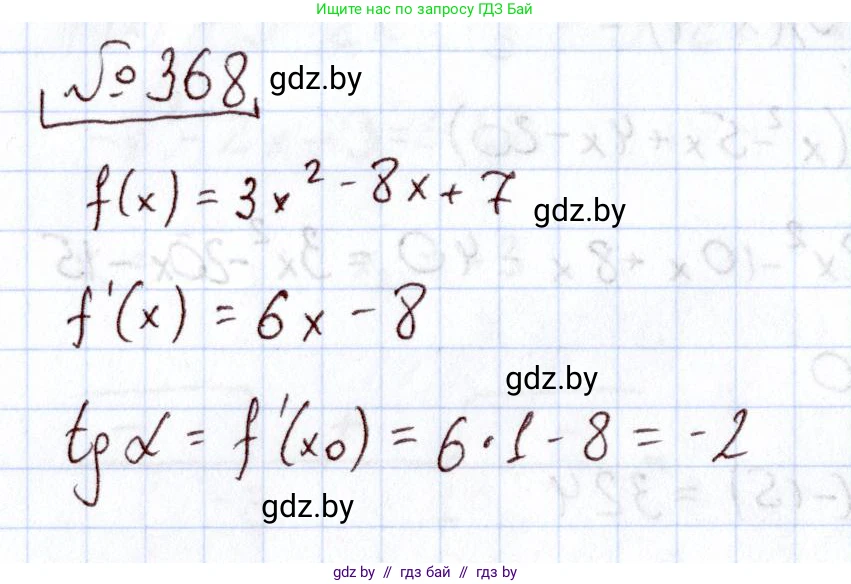 Ищите нас по запросу ГДЗ Бай
№ 368 gdz.by
f(x) = 3x² - 8x + 7 gdz.by
f'(x) = 6x - 8
gdz.by
tg α = f'(x₀) = 6 · 1 - 8 = -2
gdz.by
gdz by // гдз бай // gdz by